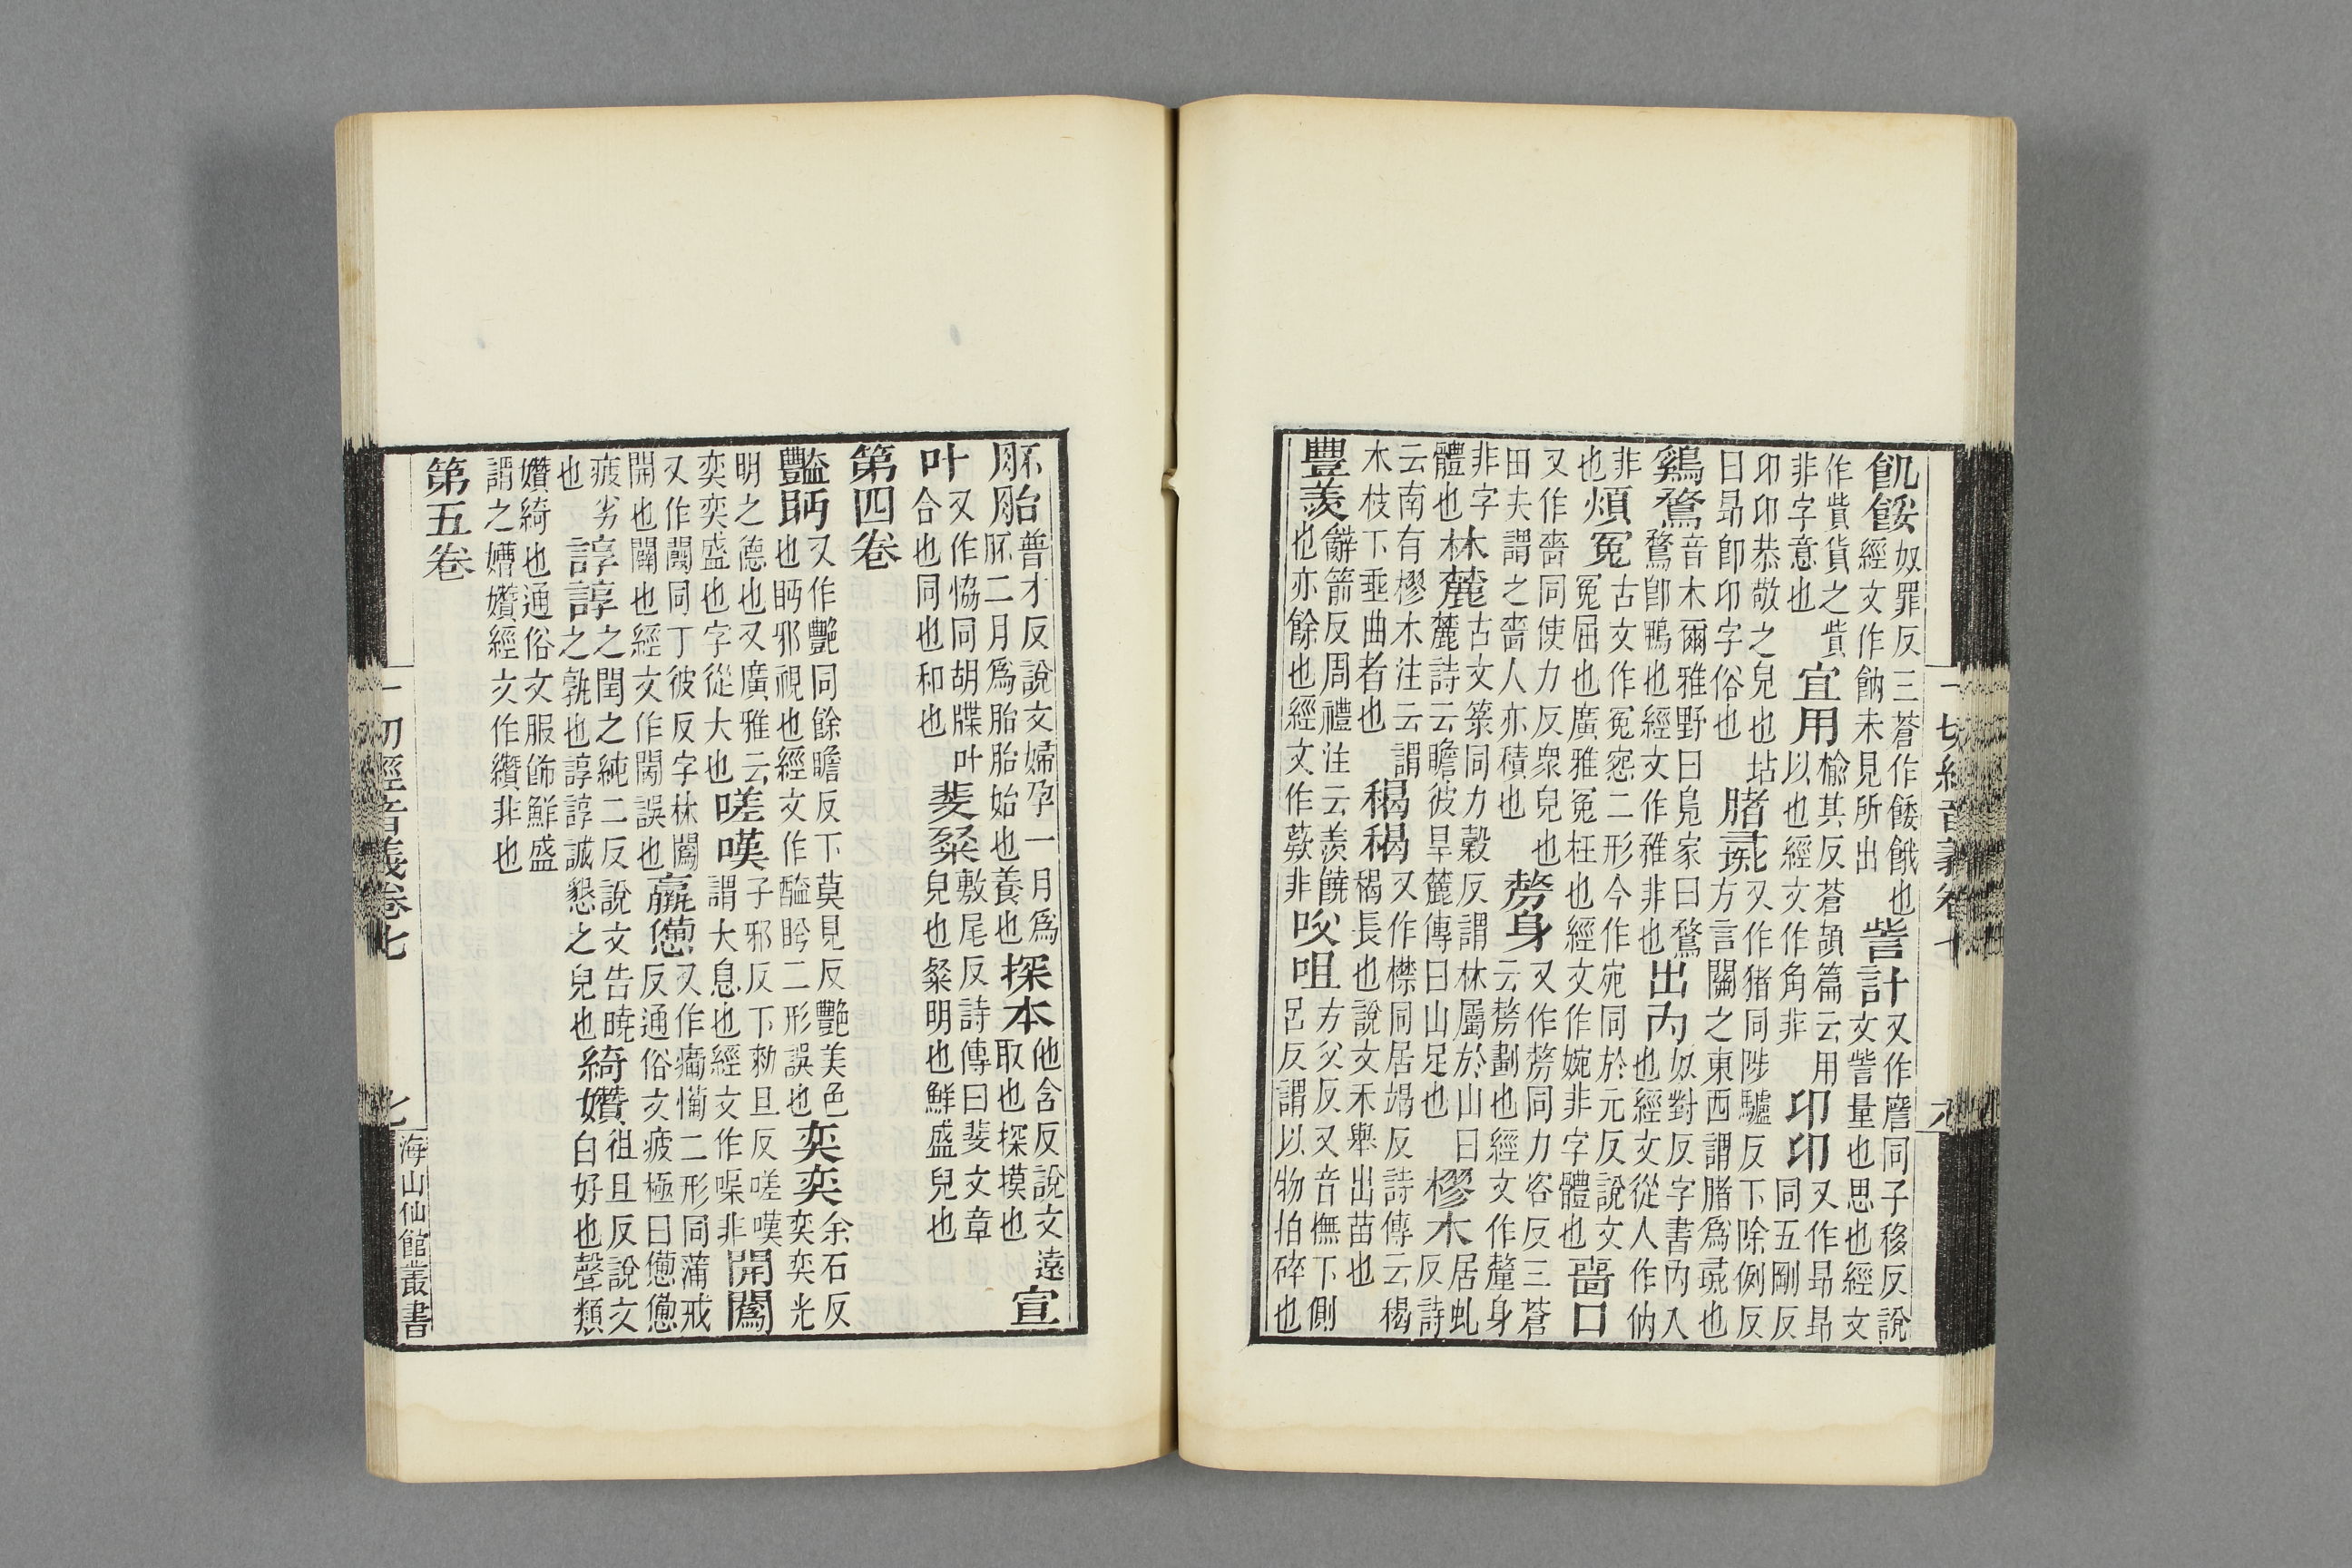 飢餒奴罪反三蒼作餧餓也經文作飷未見所出訾計又作䚹同子移反說文訾量也思也經文
作貲貨之貲非字意也宜用榆其反蒼頡篇云用以也經文作角非卬卬又作昂昂同五剛反
卬卬恭敬之皃也坫曰昂卽卬字俗也豬彘又作猪同陟驢反下除例反方言關之東西謂豬爲彘也
鷄鶩音木爾雅野曰鳧家曰鶩鶩卽鴨也經文作雅非也出內奴對反字書內入也經文從人作㐻
非也煩冤古文作冤惌二形今作宛同於元反說文冤屈也廣雅冤枉也經文作婉非字體也嗇口
又作嗇同使力反衆皃也田夫謂之嗇人亦積也剺身又作剺同力咨反三蒼云剺劃也經文作釐身
非字體也林麓古文箓同力穀反謂林屬於山曰麓詩云瞻彼旱麓傳曰山足也樛木居虬反詩
云南有樛木注云謂木枝下垂曲者也䅥䅥又作同居竭反詩傳云䅥䅥長也說文禾舉出苗也
豐羨辭箭反周禮注云羨饒也亦餘也經文作非㕮咀方父反又音撫下側呂反謂以物拍碎也
一切經音義卷七
六
胚胎普才反說文婦孕一月爲胚二月爲胎胎始也養也探本他含反說文遠取也探摸也宣
叶又作協同胡牒叶合也同也和也斐粲敷尾反詩傳曰斐文章皃也粲明也鮮盛皃也
第四卷
豔眄又作艷同餘瞻反下莫見反艷美色也眄邪視也經文作二形誤也奕奕余石反奕奕光
明之德也又廣雅云奕奕盛也字從大也嗟嘆子邪反下勅旦反嗟嘆謂大息也經文作非開闡
又作同丁彼反字林闡開也闡也經文作誤也羸憊又作二形同蒲戒反通俗文疲極曰憊憊
疲劣也諄諄之閏之純二反說文告曉之孰也諄諄誠懇之皃也綺㜺祖旦反說文白好也聲類
㜺綺也通俗文服飾鮮盛謂之㜺經文作纘非也
第五卷
一切經音義卷七
七
海山仙館叢書